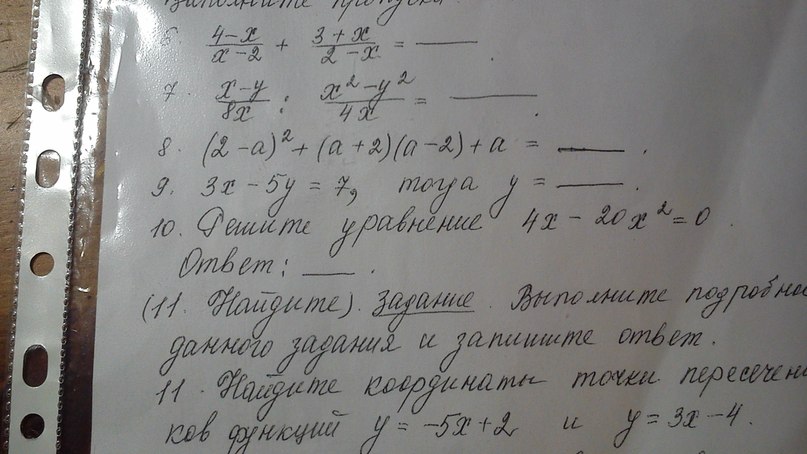 Выполните пропуски.
6. (4-x)/(x-2) + (3+x)/(2-x) = ___ .
7. (x-y)/(8x) : (x²-y²)/(4x) = ___ .
8. (2-a)² + (a+2)(a-2) + a = ___ .
9. 3x - 5y = 7, тогда y = ___ .
10. Решите уравнение 4x - 20x² = 0 .
Ответ: ___ .
(11. Найдите). Задание. Выполните подробно
данного задания и запишите ответ.
11. Найдите координаты точки пересечен
ков функций y = -5x+2 и y = 3x-4.